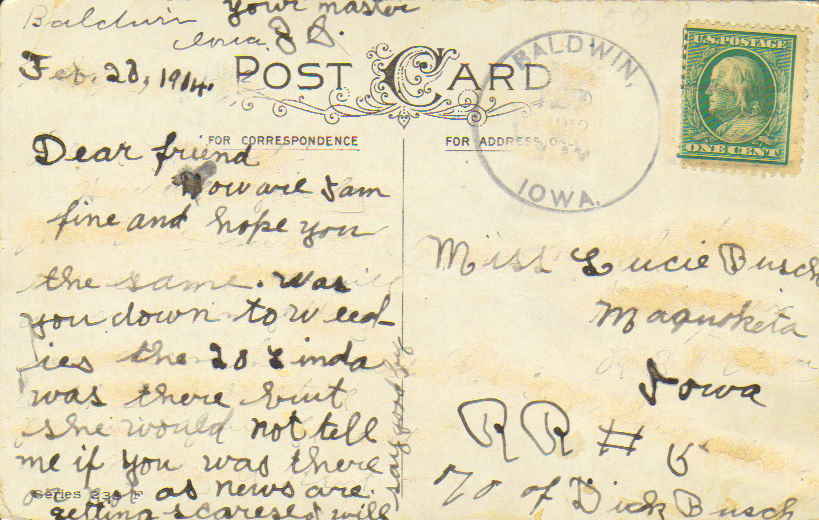 Baldwin
your master
Iowa
Feb. 28, 1914.
POST CARD
FOR CORRESPONDENCE
FOR ADDRESS ONLY
BALDWIN,
IOWA.
U.S. POSTAGE
ONE CENT
Dear friend
How are I am
fine and hope you
the same. was
you down to Weed-
ies the 28 Linda
was there but
she would not tell
me if you was there
or not as news are
getting scarese I will
say good by
Series 238 F
Miss Lucie Busch
Maquoketa
Iowa
RR # 5
% of Dick Busch